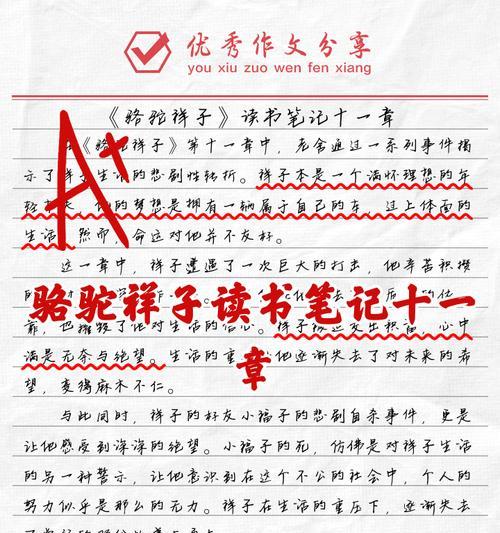 优秀作文分享
you xiu zuo wen fen xiang
《骆驼祥子》读书笔记十一章
《骆驼祥子》第十一章中，老舍通过一系列事件揭
示了祥子生活的悲剧性转折。祥子本是一个满怀理想的年
他的梦想是拥有一辆属于自己的车，过上体面的
生活。然而，命运对他并不友好。
这一章中，祥子遭遇了一次巨大的打击，他辛苦积攒
骆驼祥子读书笔记十一
章
心中
满是无奈与绝望。生活的重 他逐渐失去了对未来的希
望，变得麻木不仁。
与此同时，祥子的好友小福子的悲剧自杀事件，更是
让他感受到深深的绝望。小福子的死，仿佛是对祥子生活
的另一种警示，让他意识到在这个不公的社会中，个人的
努力似乎是那么的无力。祥子在生活的重压下，逐渐失去
A+